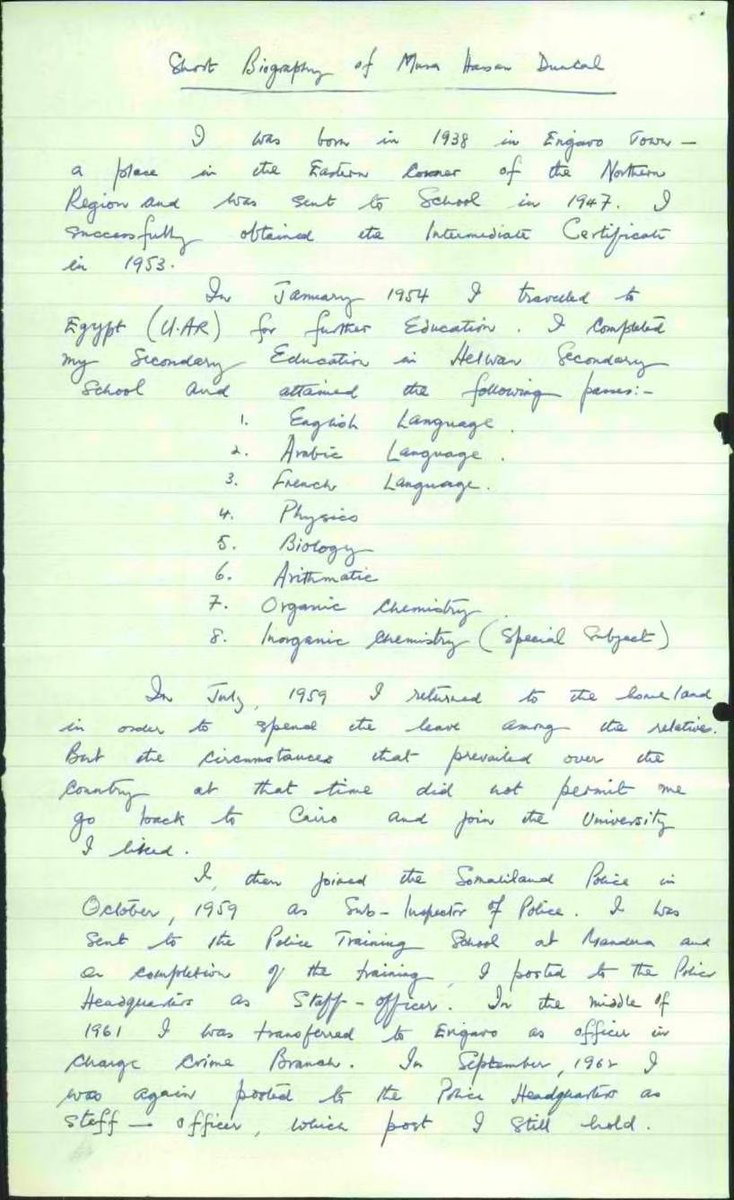 Short Biography of Musa Hassan Dunkal
I was born in 1938 in Engavo Town –
a place in the Eastern Corner of the Northern
Region and was sent to School in 1947. I
successfully obtained the Intermediate Certificate
in 1953.
In January 1954 I travelled to
Egypt (U.AR) for further Education. I completed
my Secondary Education in Helwan Secondary
School and attained the following passes:-
1. English Language.
2. Arabic Language.
3. French Language.
4. Physics
5. Biology
6. Arithmatic
7. Organic Chemistry
8. Inorganic Chemistry (Special Subject)
In July, 1959 I returned to the homeland
in order to spend the leave among the relatives.
But the circumstances that prevailed over the
Country at that time did not permit me
go back to Cairo and join the University
I liked.
I, then joined the Somaliland Police in
October, 1959 as Sub-Inspector of Police. I was
sent to the Police Training School at Mandera and
on completion of the training, I posted to the Police
Headquarters as Staff-officer. In the middle of
1961 I was transferred to Engavo as officer in
charge Crime Branch. In September, 1962 I
was again posted to the Police Headquarters as
Staff – officer, which post I still hold.